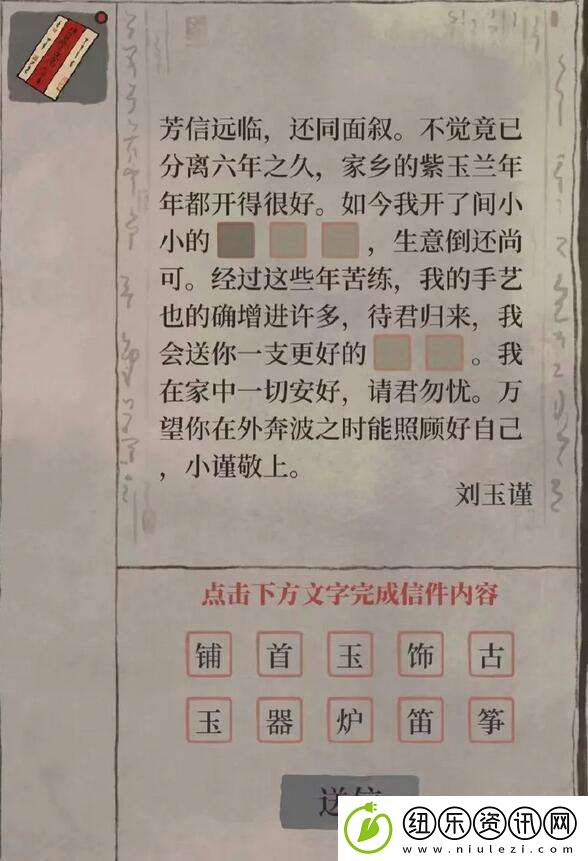 芳信远临，还同面叙。不觉竟已
分离六年之久，家乡的紫玉兰年
年都开得很好。如今我开了间小
小的，生意倒还尚
可。经过这些年苦练，我的手艺
也的确增进许多，待君归来，我
会送你一支更好的。我
在家中一切安好，请君勿忧。万
望你在外奔波之时能照顾好自己
，小谨敬上。
刘玉谨
点击下方文字完成信件内容
铺 首 玉 饰 古
玉 器 炉 笛 筝
送信
纽乐资讯网
www.niulezi.com